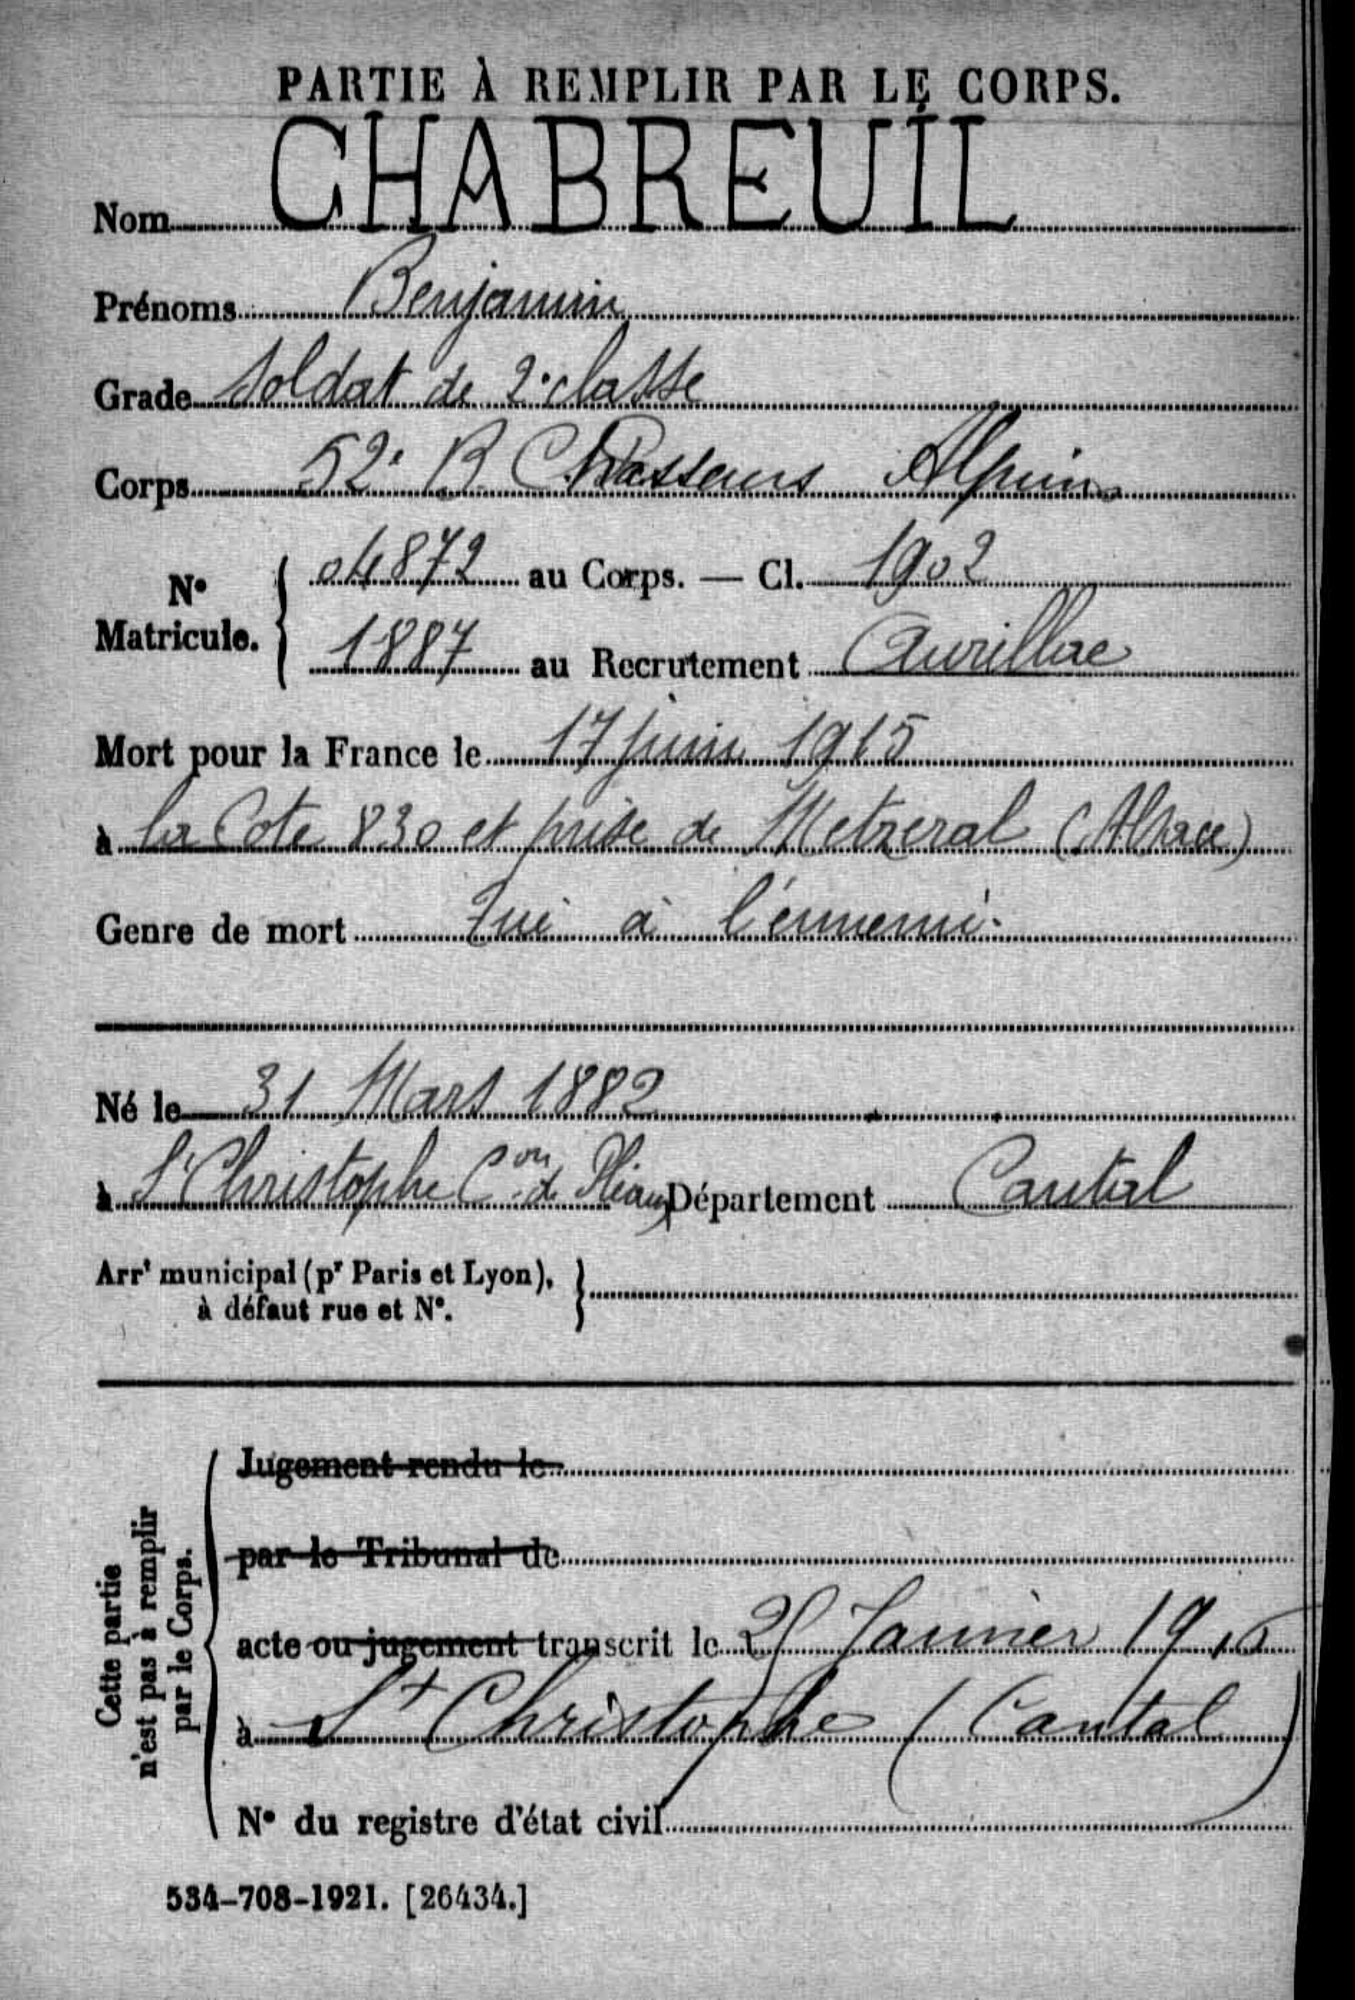 PARTIE À REMPLIR PAR LE CORPS.
Nom CHABREUIL
Prénoms Benjamin
Grade Soldat de 2e classe
Corps 52e B. Chasseurs Alpins
N° Matricule. 04872 au Corps. — Cl. 1902
1887 au Recrutement Aurillac
Mort pour la France le 17 juin 1915
à la Cote 830 et prise de Metzeral (Alsace)
Genre de mort Tué à l'ennemi.
Né le 31 Mars 1882
à St Christophe Con de Pléaux Département Cantal
Arrt municipal (pr Paris et Lyon),
à défaut rue et N°.
Cette partie
n'est pas à remplir
par le Corps.
Jugement rendu le
par le Tribunal de
acte ou jugement transcrit le Janvier 1916
à St Christophe (Cantal)
N° du registre d'état civil
534-708-1921. [26434.]